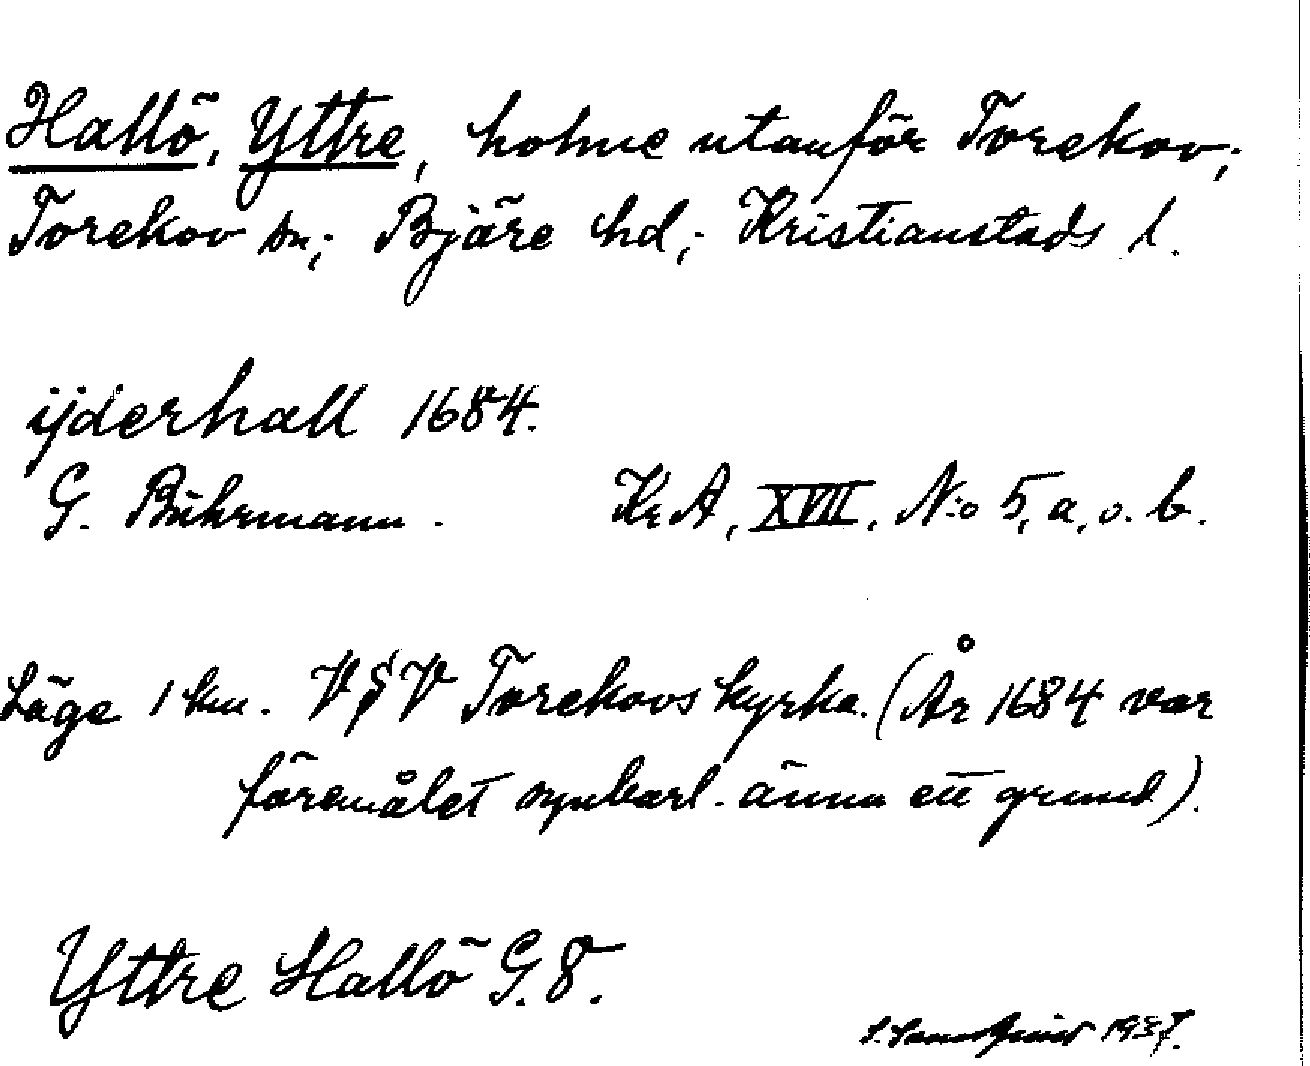 Hallö, Yttre, holme utanför Torekov;
Torekov sn; Bjäre hd; Kristianstads l.
ijderhall 1684.
G. Buhrmann. KrA, XVII, N:o 5, a, o. b.
Läge 1 km. VSV Torekovs kyrka. (År 1684 var
föremålet synbarl. ännu ett grund).
Yttre Hallö G.8.
1937.